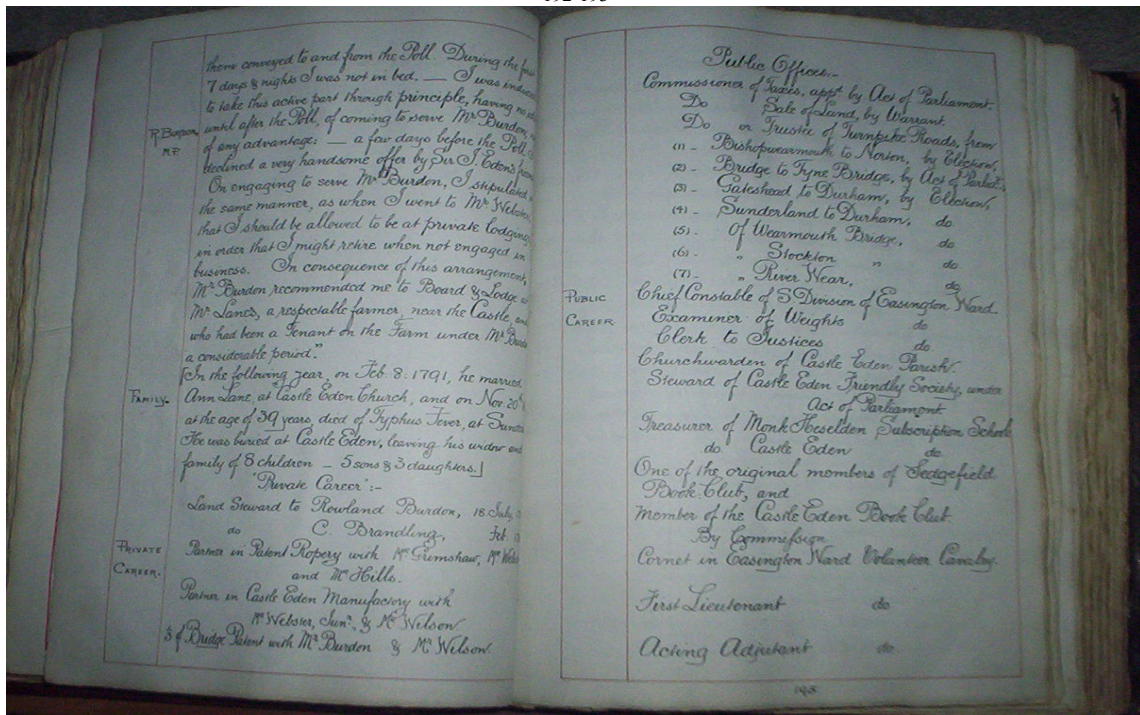 192-193
them conveyed to and from the Poll. During the
7 days & nights I was not in bed. — I was
to take this active part through principle, having no
until after the Poll, of coming to serve Mr Burdon,
of any advantage: — a few days before the Poll
declined a very handsome offer by Sir J. Eden's
On engaging to serve Mr Burdon, I stipulated
the same manner, as when I went to Mr Webster,
that I should be allowed to be at private lodging
in order that I might retire when not engaged in
business. In consequence of this arrangement,
Mr Burdon recommended me to Board & Lodge
Mr Lane's, a respectable farmer, near the Castle,
who had been a Tenant on the Farm under Mr
a considerable period."
[In the following year, on Feb. 8. 1791, he married
Ann Lane, at Castle Eden Church, and on Nov. 20th
at the age of 39 years, died of Typhus Fever, at
He was buried at Castle Eden, leaving his widow and
family of 8 children – 5 sons & 3 daughters.]
'Private Career':-
Land Steward to Rowland Burdon, 18. July,
do C. Brandling, Feb.
Partner in Patent Ropery with Mr Grimshaw, Mr
and Mr Hills.
Partner in Castle Eden Manufactory with
Mr Webster, Junr., & Mr Wilson.
1/3 of Bridge Patent with Mr Burdon & Mr Wilson.
R. Burdon,
M.P.
Family.
Private
Career.
Public Offices:-
Commissioner of Taxes, appd by Act of Parliament.
Do Sale of Land, by Warrant.
Do or Trustee of Turnpike Roads, from
(1) - Bishopwearmouth to Norton, by Election,
(2) - Bridge to Tyne Bridge, by Act of Parliat.,
(3) - Gateshead to Durham, by Election,
(4) - Sunderland to Durham, do
(5) - Of Wearmouth Bridge, do
(6) - " Stockton " do
(7) - " River Wear, do
Chief Constable of S. Division of Easington Ward.
Examiner of Weights do
Clerk to Justices do
Churchwarden of Castle Eden Parish.
Steward of Castle Eden Friendly Society, under
Act of Parliament
Treasurer of Monk Heselden Subscription Schools
do Castle Eden do
One of the original members of Sedgefield
Book Club, and
Member of the Castle Eden Book Club.
By Commission
Cornet in Easington Ward Volunteer Cavalry.
First Lieutenant do
Acting Adjutant do
Public
Career.
193